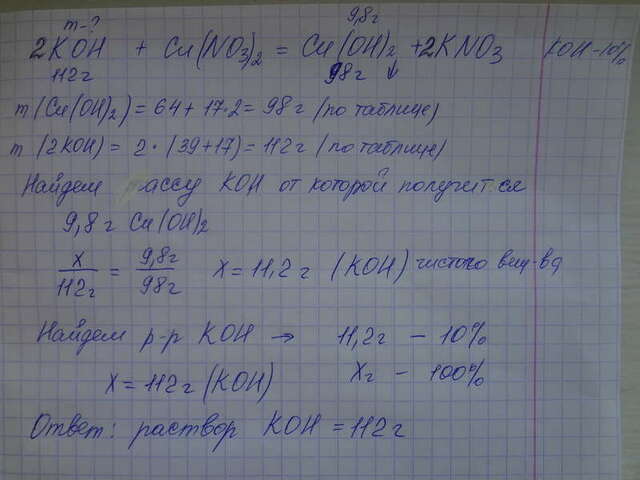 m-?
9,8г
2KOH + Cu(NO3)2 = Cu(OH)2 ↓ +2KNO3 KOH-10%
112г
98г
m (Cu(OH)2) = 64 + 17·2 = 98г (по таблице)
m (2KOH) = 2 · (39+17) = 112г (по таблице)
Найдем массу KOH от которой получится
9,8г Cu(OH)2
x/112г = 9,8г/98г x = 11,2г (KOH) чистого вещ-ва
Найдем р-р KOH → 11,2г - 10%
x = 112г (KOH) xг - 100%
Ответ: раствор KOH = 112г